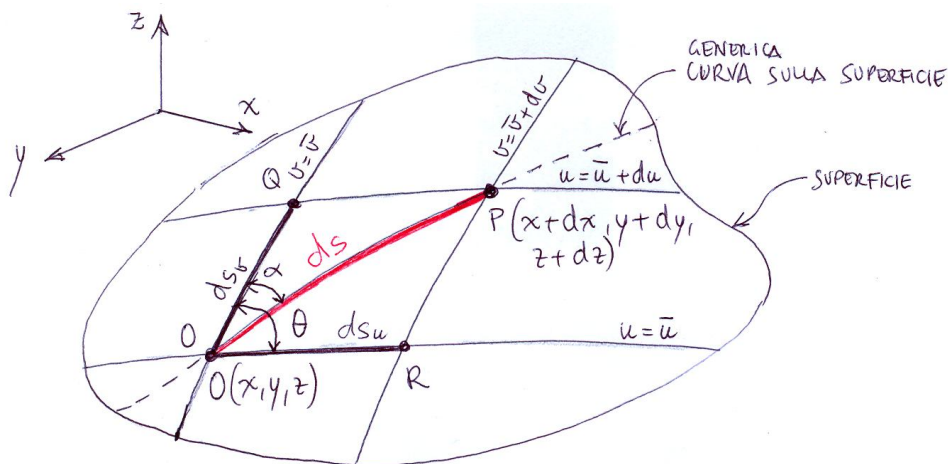 z
x
y
GENERICA
CURVA SULLA SUPERFICIE
SUPERFICIE
Q
v=v̅
v=v̅+dv
u=u̅+du
P(x+dx,y+dy,
z+dz)
ds
dsv
α
θ
dsu
u=u̅
O
O(x,y,z)
R